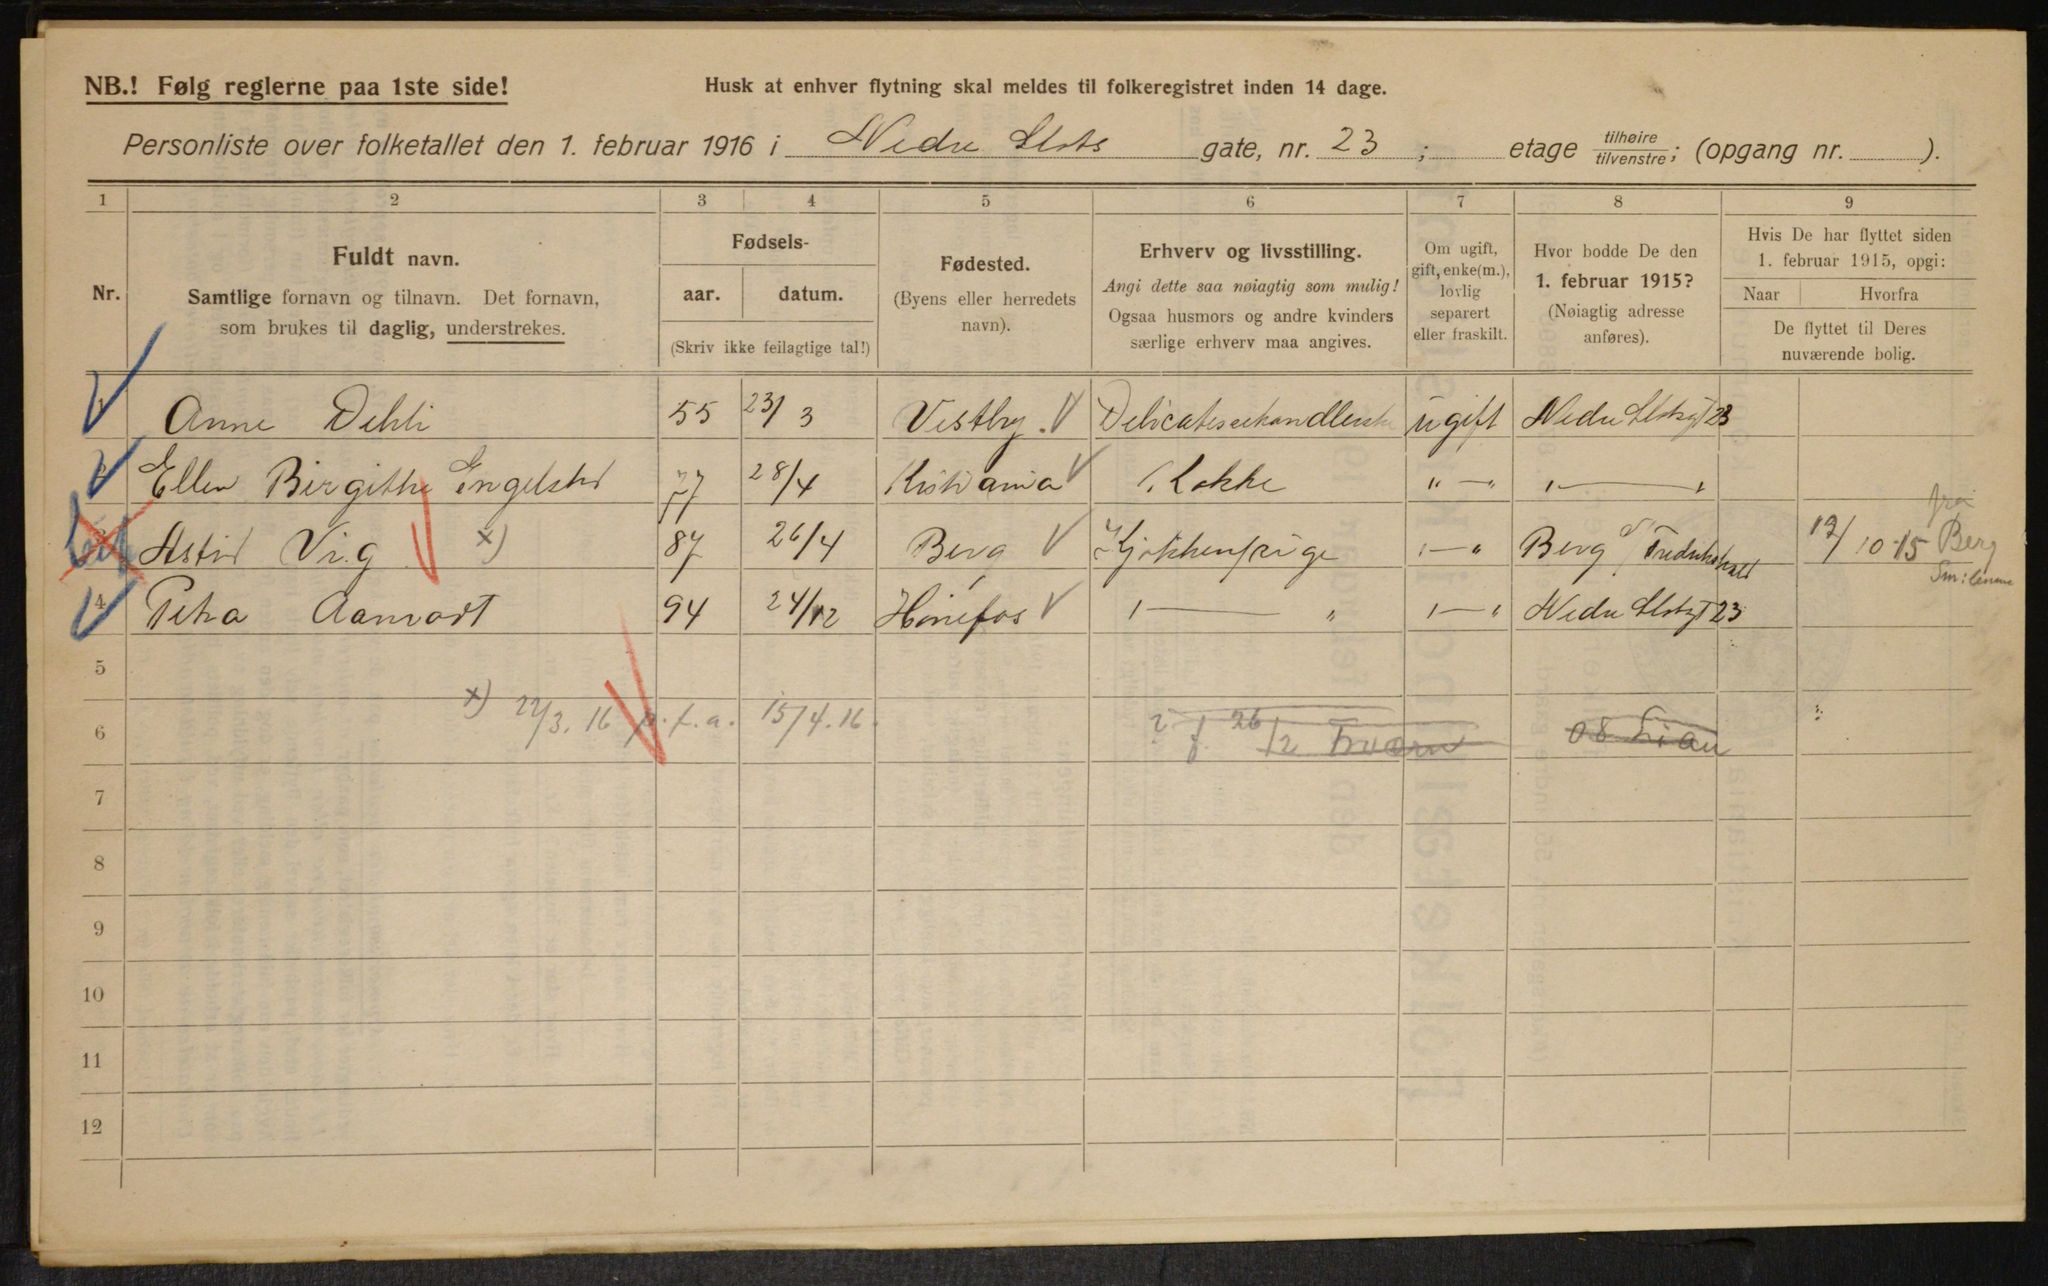 NB.! Følg reglerne paa 1ste side!
Husk at enhver flytning skal meldes til folkeregistret inden 14 dage.
Personliste over folketallet den 1. februar 1916 i Nedre Slots gate, nr. 23 ; etage tilhøire/tilvenstre; (opgang nr. ).
1 2 3 4 5 6 7 8 9
Nr.
Fuldt navn.
Samtlige fornavn og tilnavn. Det fornavn,
som brukes til daglig, understrekes.
Fødsels-
aar. datum.
(Skriv ikke feilagtige tal!)
Fødested.
(Byens eller herredets
navn).
Erhverv og livsstilling.
Angi dette saa nøiagtig som mulig!
Ogsaa husmors og andre kvinders
særlige erhverv maa angives.
Om ugift,
gift, enke(m.),
lovlig
separert
eller fraskilt.
Hvor bodde De den
1. februar 1915?
(Nøiagtig adresse
anføres).
Hvis De har flyttet siden
1. februar 1915, opgi:
Naar Hvorfra
De flyttet til Deres
nuværende bolig.
1 Anne Dehli 55 23/3 Vestby Delicatessehandlerske ugift Nedre Slotsgt 23
2 Ellen Birgithe Engelstad 77 28/4 Kristiania Kokke " — " " — "
3 Astrid Vig x) 87 26/4 Berg Kjøkkenpige " — " Berg Fredrikshald 12/10-15 fra Berg Smålenene
4 Petra Aamodt 94 24/12 Hønefos " — " " — " Nedre Slotsgt 23
5
6 x) 22/3. 16 p.f.a. 15/4.16. f. 26/2
7
8
9
10
11
12